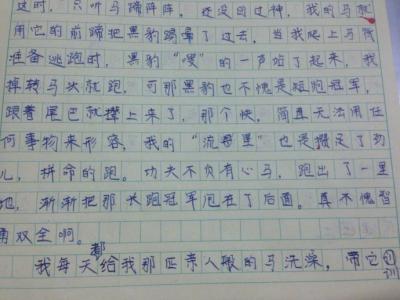 这时，只听马蹄阵阵，还没回过神，我的马就
用它的前蹄把黑豹踢晕了过去，当我爬上马背
准备逃跑时，黑豹“嗖”的一声站了起来，我
掉转马头就跑，可那黑豹也不愧是短跑冠军，
跟着尾巴就撵上来了，那个快，简直无法用任
何事物来形容，我的“流星”也是攒足了劲
儿，拼命的跑。功夫不负有心马，跑出了一里
地，渐渐把那长跑冠军甩在了后面。真不愧智
勇双全啊。
我每天都给我那匹亲人般的马洗澡，带它
训